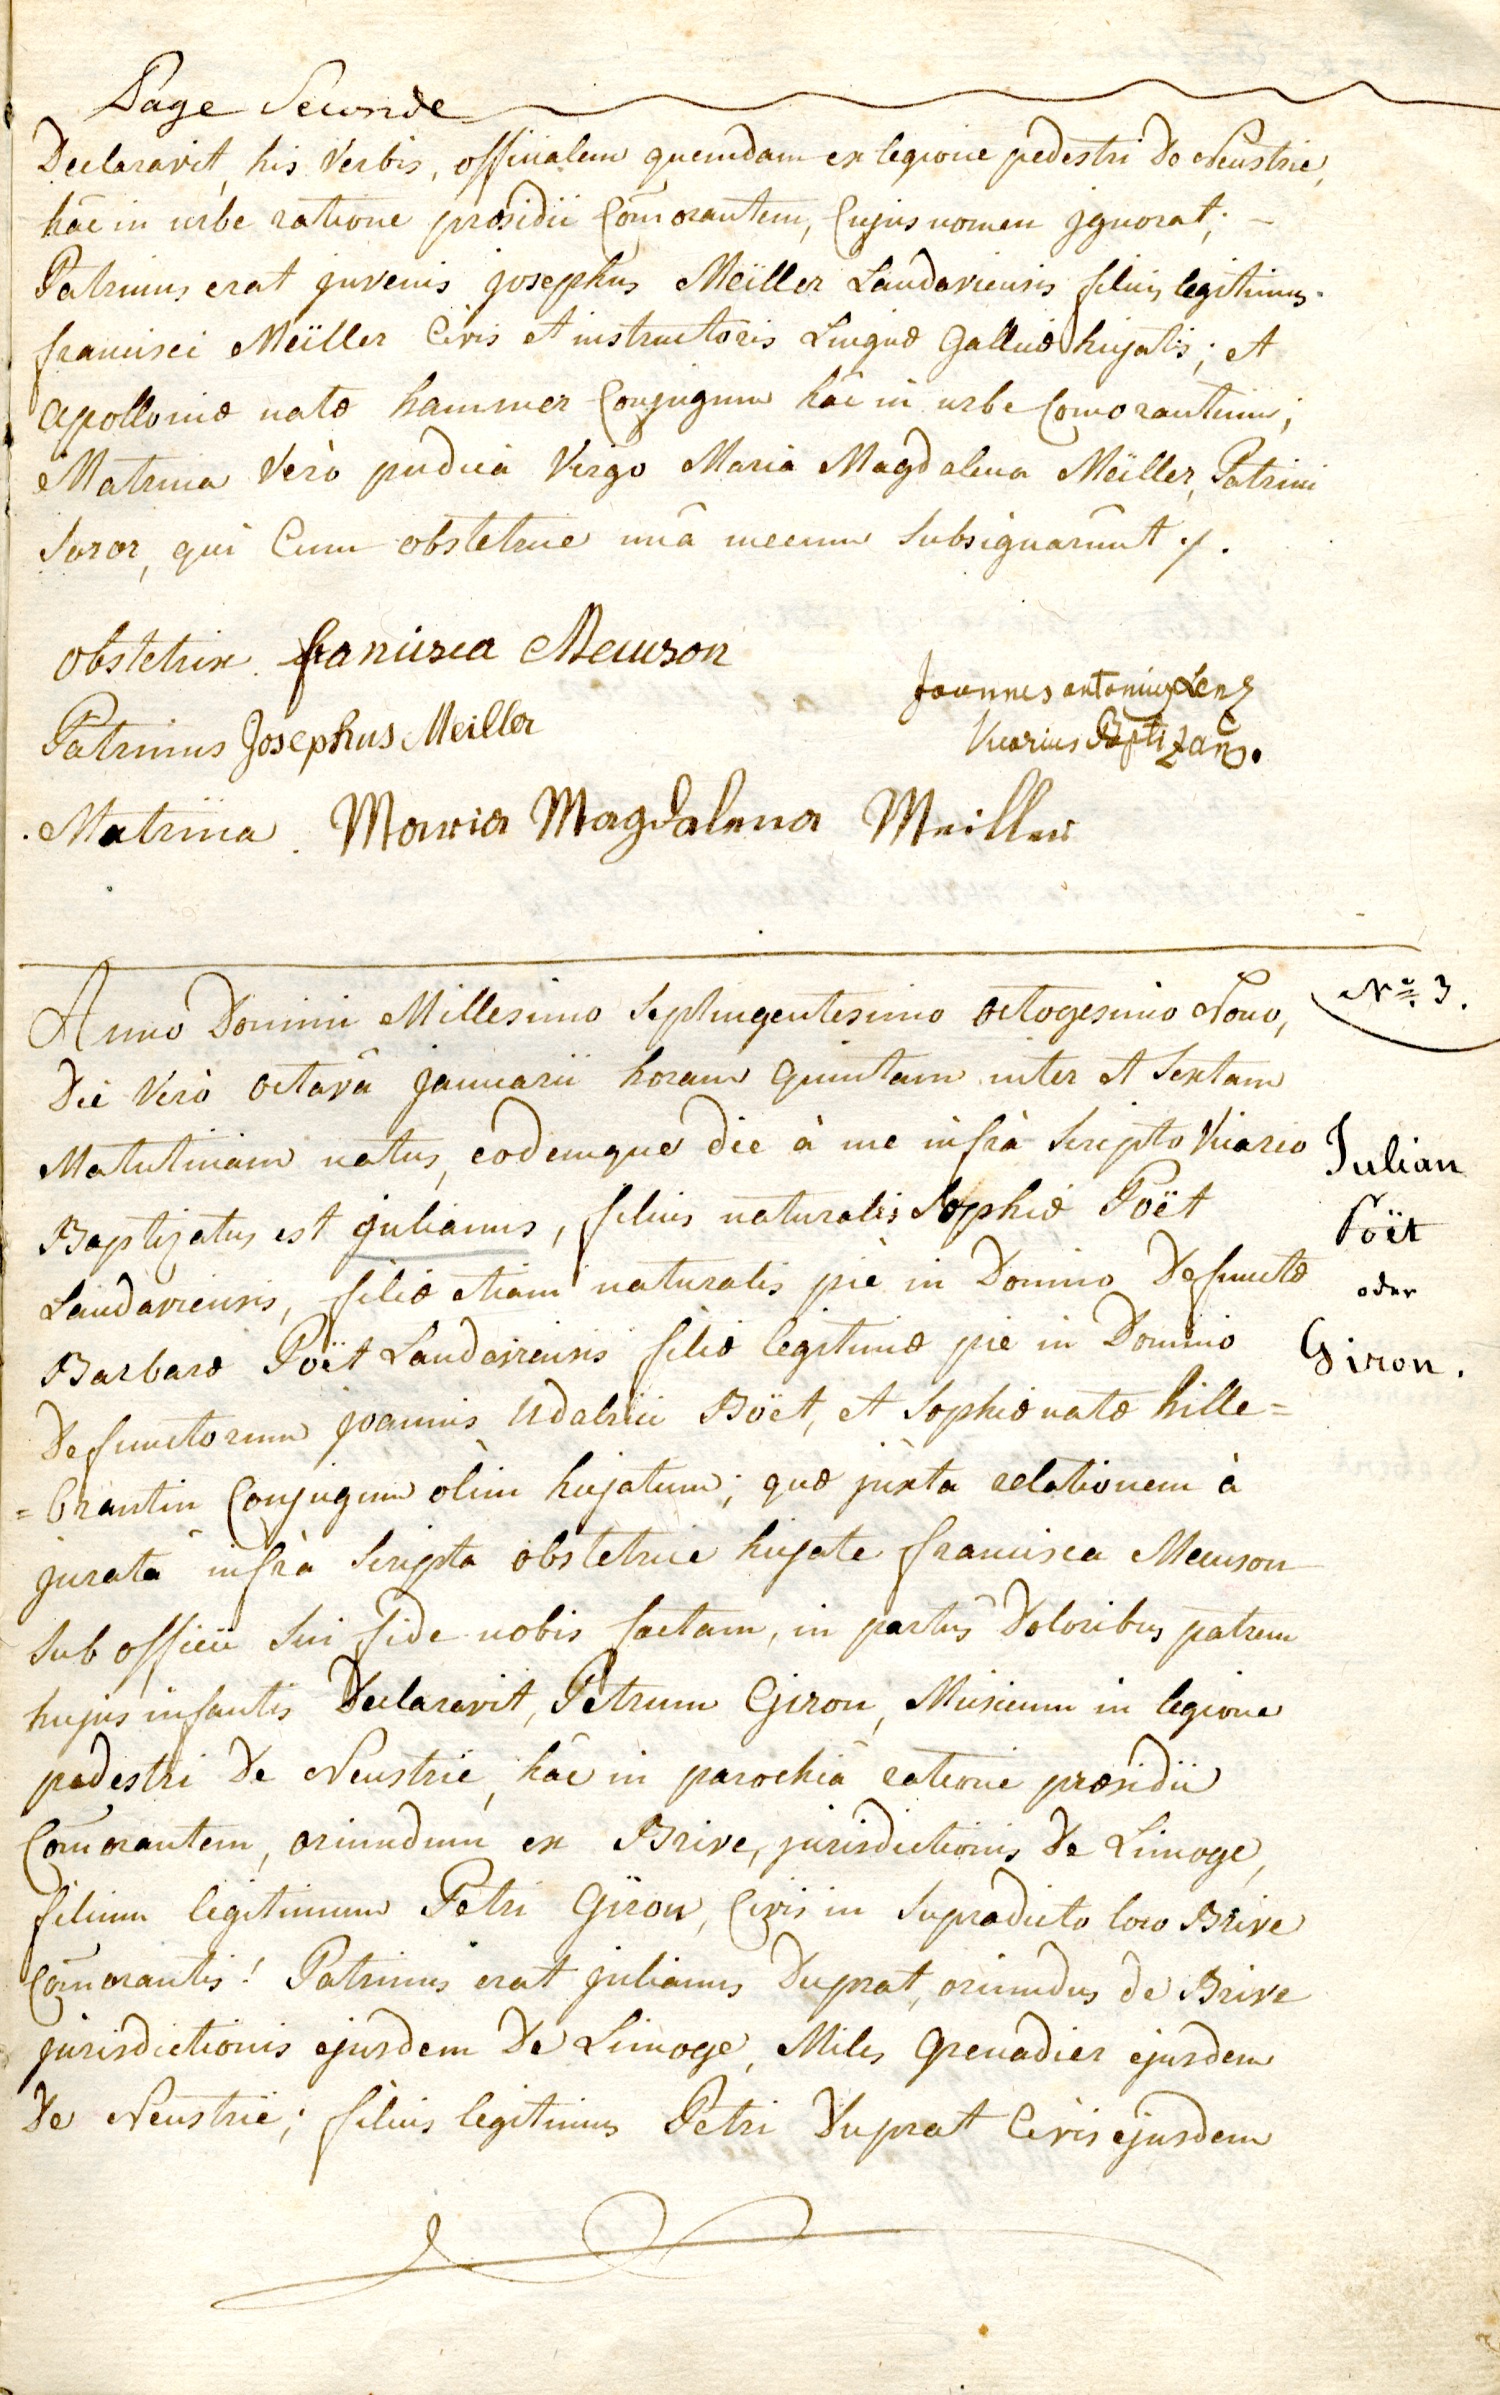 Page Seconde
Declaravit, his Verbis, officialem quemdam ex legione pedestri De Neustrie,
hâc in urbe ratione præsidii Com̄orantem, Cujus nomen ignorat; –
Patrinus erat juvenis josephus Meïller Landaviensis filius legitimus
francisci Meïller Civis et instructoris Linguæ Gallicæ hujatis; et
Apolloniæ natæ hammer Conjugum hâc in urbe Comorantium;
Matrina Verò pudica Virgo Maria Magdalena Meïller, Patrini
Soror, qui Cum obstetrice unâ mecum Subsignarûnt ./.
obstetrix francisca Meurson
Joannes antonius Lenz
Patrinus Josephus Meiller
Vicarius Baptizans.
Matrina. Maria Magdalena Meiller
Nº. 3.
Anno Domini Millesimo Septingentesimo octogesimo Nono,
Die Verò octavâ januarii horam quintam inter et Sextam
Matutinam natus, eodemque die à me infrà Scripto Vicario
Julian
Baptizatus est julianus, filius naturalis Sophiæ Poët
Poët
Landaviensis, filiæ etiam naturalis piè in Domino Defunctæ
oder
Barbaræ Poët Landaviensis filiæ legitimæ pie in Domino
Giron.
Defunctorum joannis Udalrici Boët, et Sophiæ natæ hille=
=brantin Conjugum olim hujatum; quæ juxta relationem à
juratâ infrà Scripta obstetrice hujate francisca Meurson
Sub officii Sui fide nobis factam, in partûs Doloribus patrem
hujus infantis Declaravit, Petrum Giron, Musicum in legione
pedestri De Neustrie, hâc in parochiâ ratione præsidii
Com̄orantem, oriundum ex Brive, jurisdictionis De Limoge,
filium legitimum Petri Giron, Civis in Supradicto loco Brive
Com̄orantis! Patrinus erat julianus Duprat, oriundus de Brive
jurisdictionis ejusdem De Limoge, Miles Grenadier ejusdem
De Neustrie; filius legitimus Petri Duprat Civis ejusdem